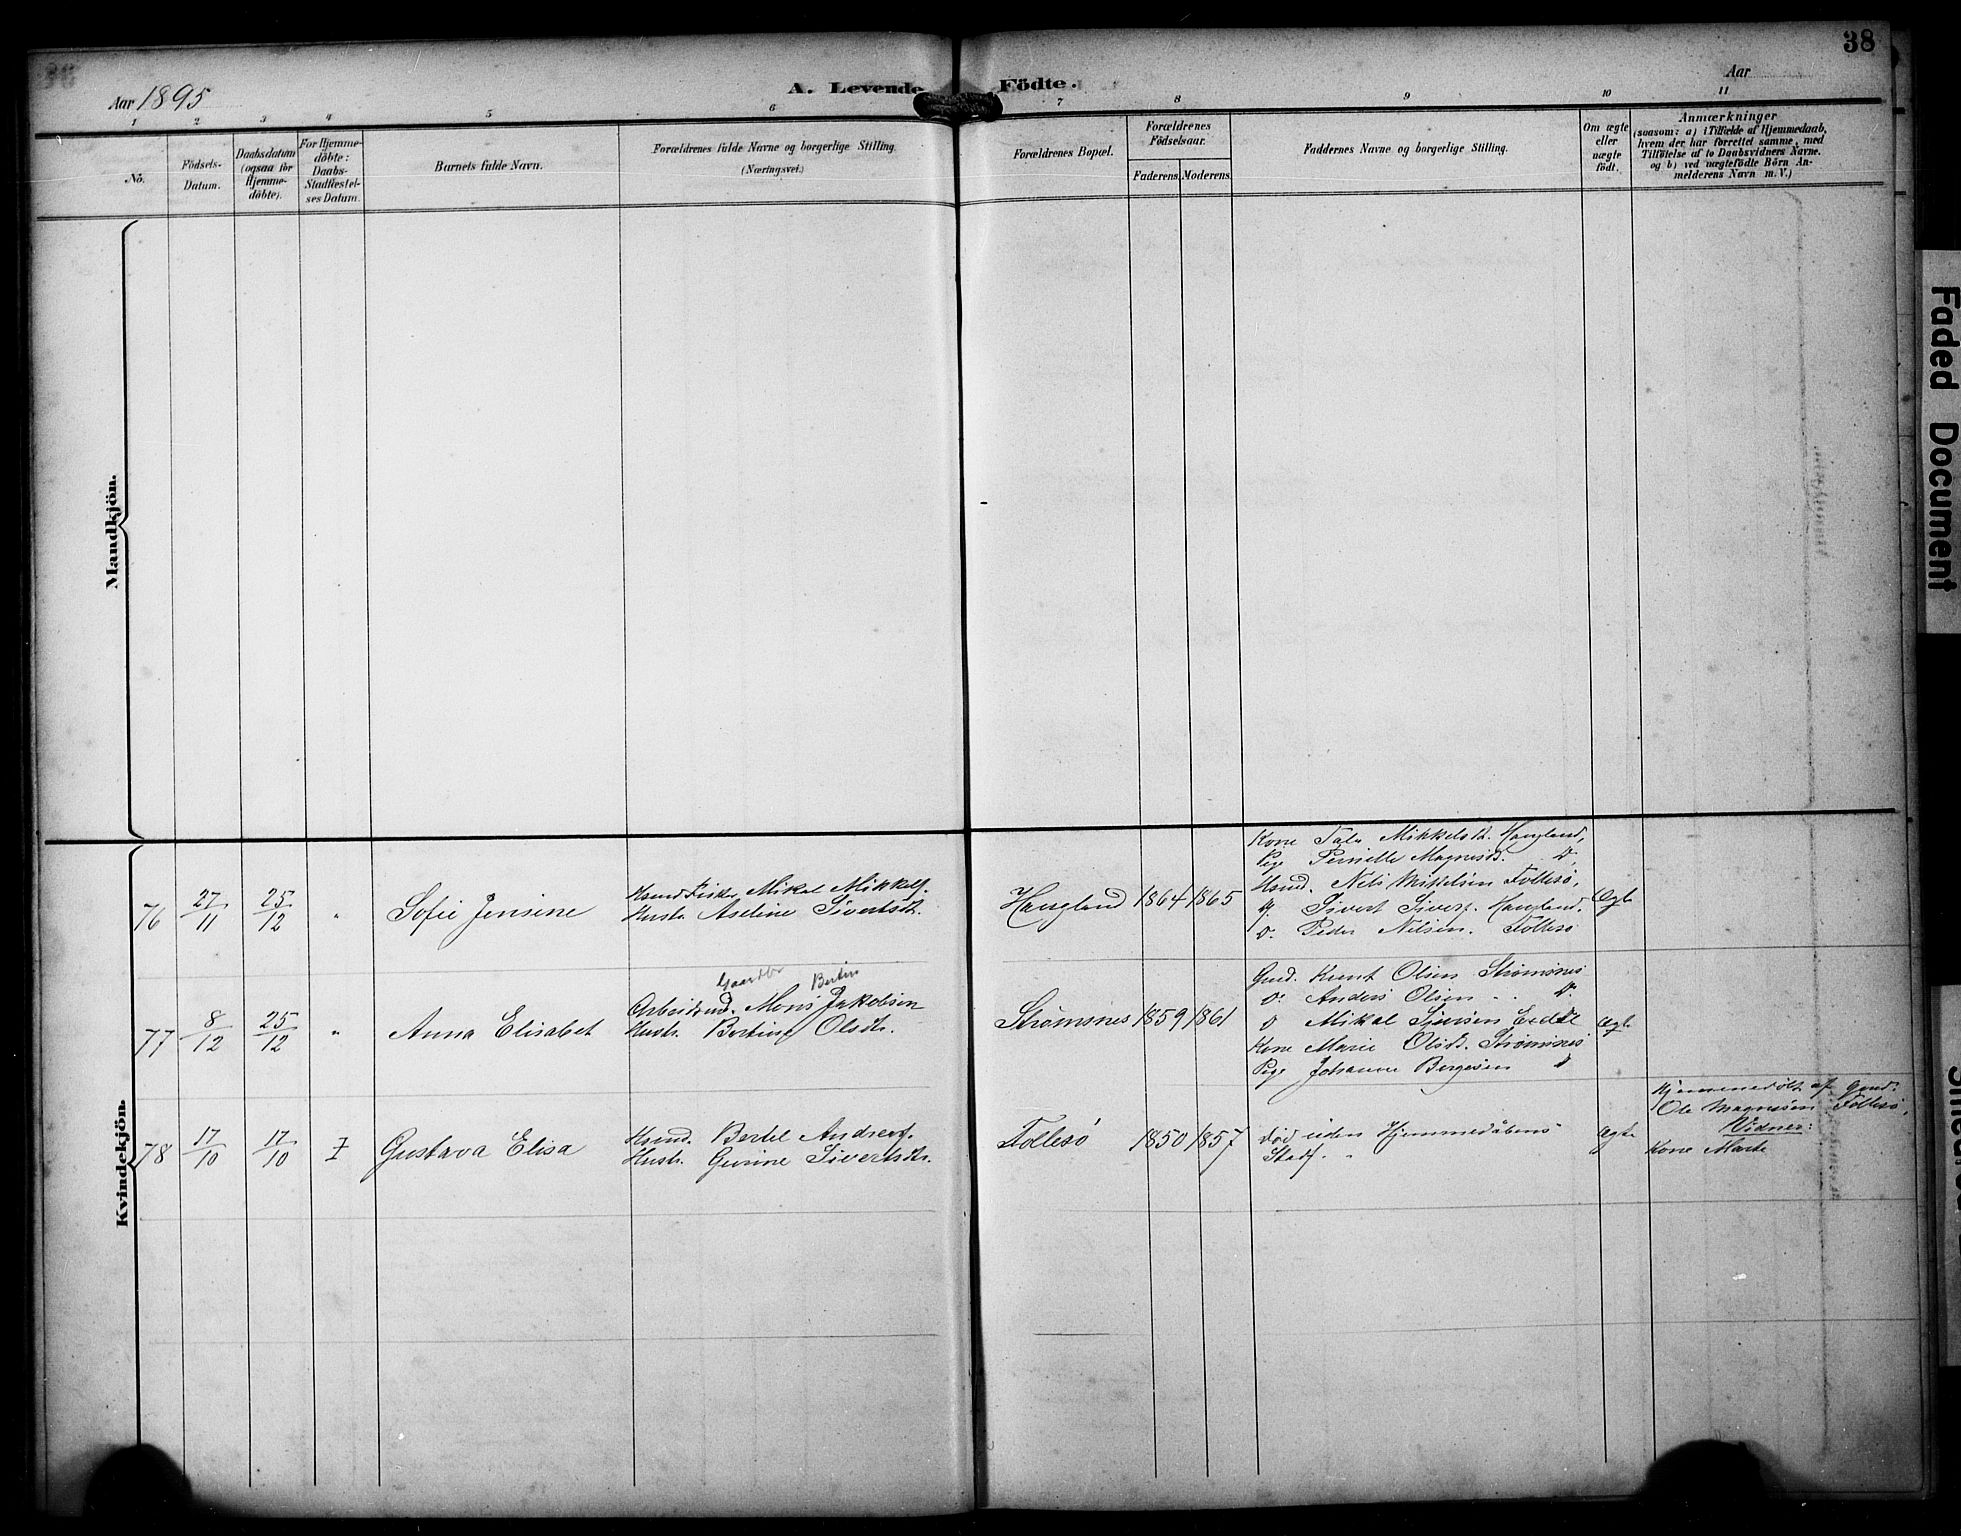 38
Aar 1895
A. Levende Födte.
Aar
1 2 3 4 5 6 7 8 9 10 11
No.
Födsels-
Datum.
Daabsdatum
(ogsaa for
Hjemme-
döbte).
For Hjemme-
döbte:
Daabs-
Stadfæstel-
ses Datum.
Barnets fulde Navn.
Forældrenes fulde Navne og borgerlige Stilling
(Næringsvei.)
Forældrenes Bopæl.
Forældrenes
Födselsaar.
Faderens. Moderens.
Faddernes Navne og borgerlige Stilling.
Om ægte
eller
uægte
födt.
Anmærkninger
(saasom: a) i Tilfælde af Hjemmedaab,
hvem der har forrettet samme, med
Tilföielse af to Daabsvidners Navne.
og b) ved uægtefödte Börn An-
melderens Navn m. V.)
Mandkjön.
Kvindekjön.
76 27/11 25/12 " Sofie Jensine
Husmd Fisker Mikal Mikkels.
Hustr. Aseline Sivertsdtr.
Haugland 1864 1865
Kone Mikkelsd. Haugland,
Pige Pernille Magnesd. D.
Husmd. Nils Mikkelsen Follesö,
Sivert Sivers. Haugland.
D. Peder Nilsen. Follesö
Ægte
77 8/12 25/12 " Anna Elisabet
Gaardbr Bertin
Arbeidsmd. Mons Jakobsen
Hustr. Bertine Olsdtr.
Strømsnes 1859 1861
Gmd. Knut Olsen Strømsnes
D. Anders Olsen D.
D Mikal Sjursen
Kone Marie Olsd. Strømsnes
Pige Johanne Børgesen D
Ægte
78 17/10 17/10 Gustava Elisa
Husmd. Bertel Andreas.
Hustr. Gurine Sivertsdtr.
Follesö 1850 1857
død uden Hjemmedåbens
Stadf.
Ægte
Hjemmedöbt af Gmd.
Ole Magnesen Follesö,
Vidner:
Kone Marte
Faded Document